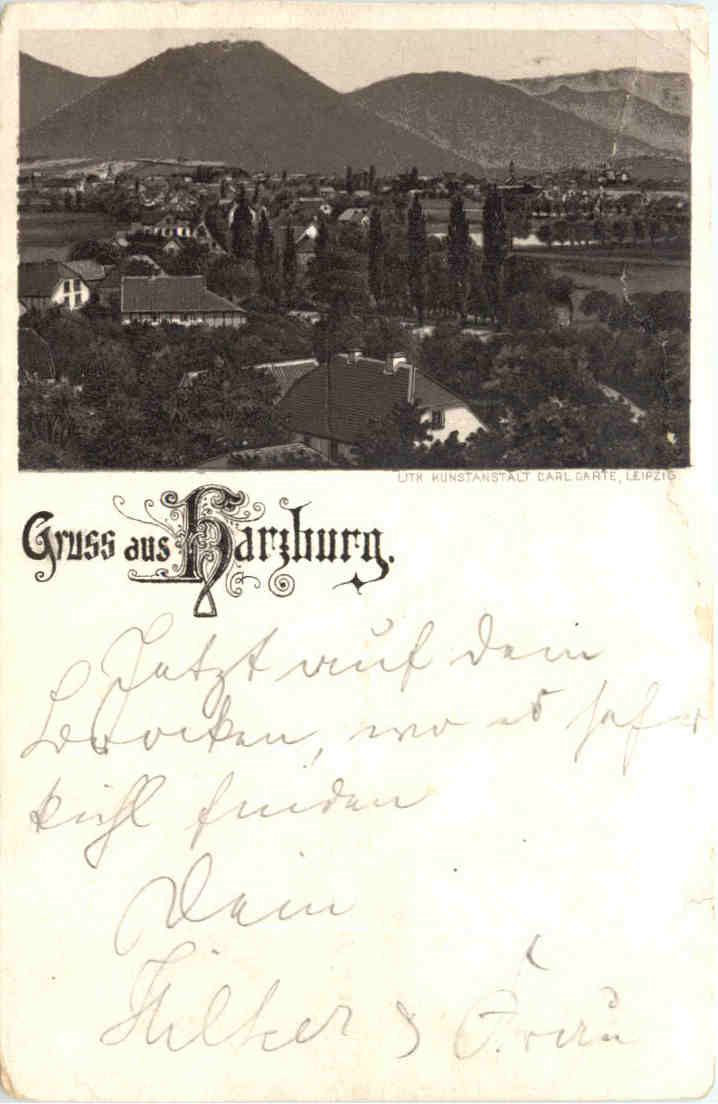 LITH KUNSTANSTALT CARL GARTE, LEIPZIG
Gruss aus Harzburg.
Jetzt auf dem
Brocken, wo es sehr
kühl finden
Dein
& Frau